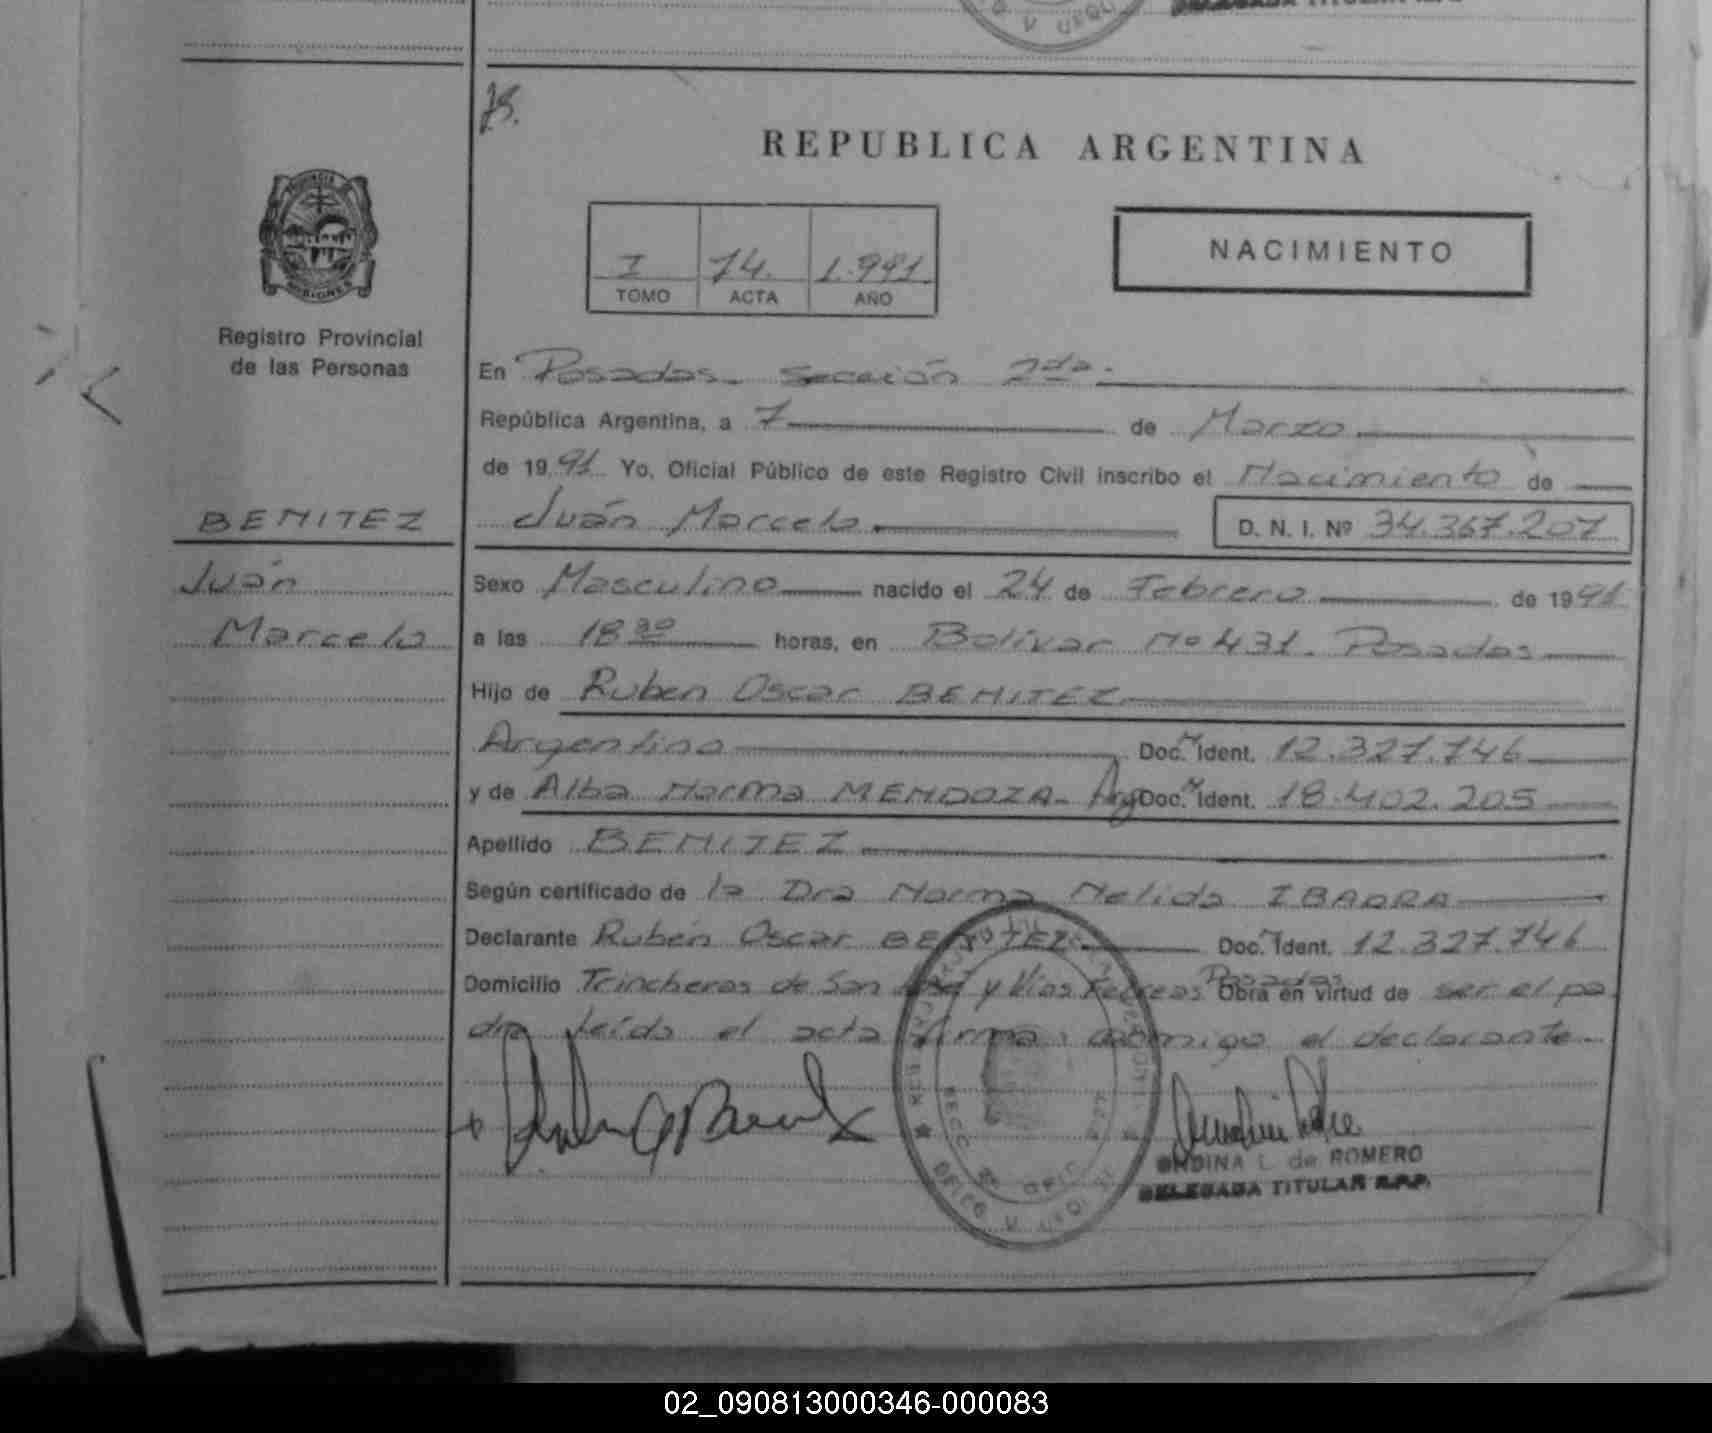 DELEGADA TITULAR R.P.P.
75.
REPUBLICA ARGENTINA
I 74. 1.991
TOMO ACTA AÑO
NACIMIENTO
PROVINCIA DE
MISIONES
Registro Provincial
de las Personas
En Posadas. Sección 2da.
República Argentina, a 7 de Marzo
de 1991 Yo, Oficial Público de este Registro Civil inscribo el Nacimiento de
BENITEZ Juán Marcelo D. N. I. Nº 34.367.207
Juán Sexo Masculino nacido el 24 de Febrero de 1991
Marcelo a las 18 30 horas, en Bolívar Nº 431. Posadas
Hijo de Ruben Oscar BENITEZ
Argentino Doc. N Ident. 12.327.746
y de Alba Norma MENDOZA - Arg Doc. N Ident. 18.402.205
Apellido BENITEZ
Según certificado de la Dra Norma Nelida IBARRA
Declarante Rubén Oscar BENITEZ Doc. N Ident. 12.327.746
Domicilio Trincheras de San José y Vías Ferreas Posadas Obra en virtud de ser el pa
dre leída el acta firma conmigo el declarante.
ONDINA L. de ROMERO
DELEGADA TITULAR R.P.P.
02_090813000346-000083